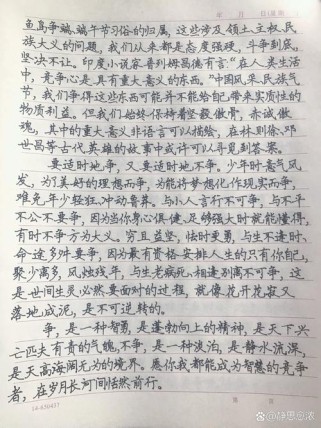 年 月 日(星期
鱼岛争端、端午节习俗的归属,这些涉及领土主权、民
族大义的问题,我们从来都是态度强硬、斗争到底、
坚决不让。印度小说家普列姆昌德有言:“在人类生活
中,竞争心是具有重大意义的东西。”中国风采、民族气
节,我们争得这些东西可能并不能给配带来实质性的
物质利益。但我们始终保持着坚毅傲骨、赤诚傲
魂,其中的重大意义非语言可以描绘,在林则徐、邓
世昌等古代英雄的故事中或许可以寻觅到答案。
要适时地争,又要适时地不争。少年时意气风
发,为了美好的理想而争,为能将梦想化作现实而争,
难免年少轻狂、冲动鲁莽。与小人言行不可争,与不平
不公不要争,因为当你身心俱健、足够强大时就能懂得,
有时不争方为大义。穷且益坚,怯时更勇,与生不逢时、
命途多舛要争,因为最有资格安排人生的只有你自己,
聚少离多,风烛残年,与生老病死、相逢别离不可争,这
是世间生灵必然要面对的过程,就像花开花寂又
落地成泥,是不可逆转的。
争,是一种智勇,是蓬勃向上的精神,是天下兴
亡匹夫有责的气魄。不争,是一种淡泊,是静水流深,
是天高海阔无为的境界。愿你我都能成为智慧的竞争
者,在岁月长河间恬然前行。
14-650437
@静思思浓